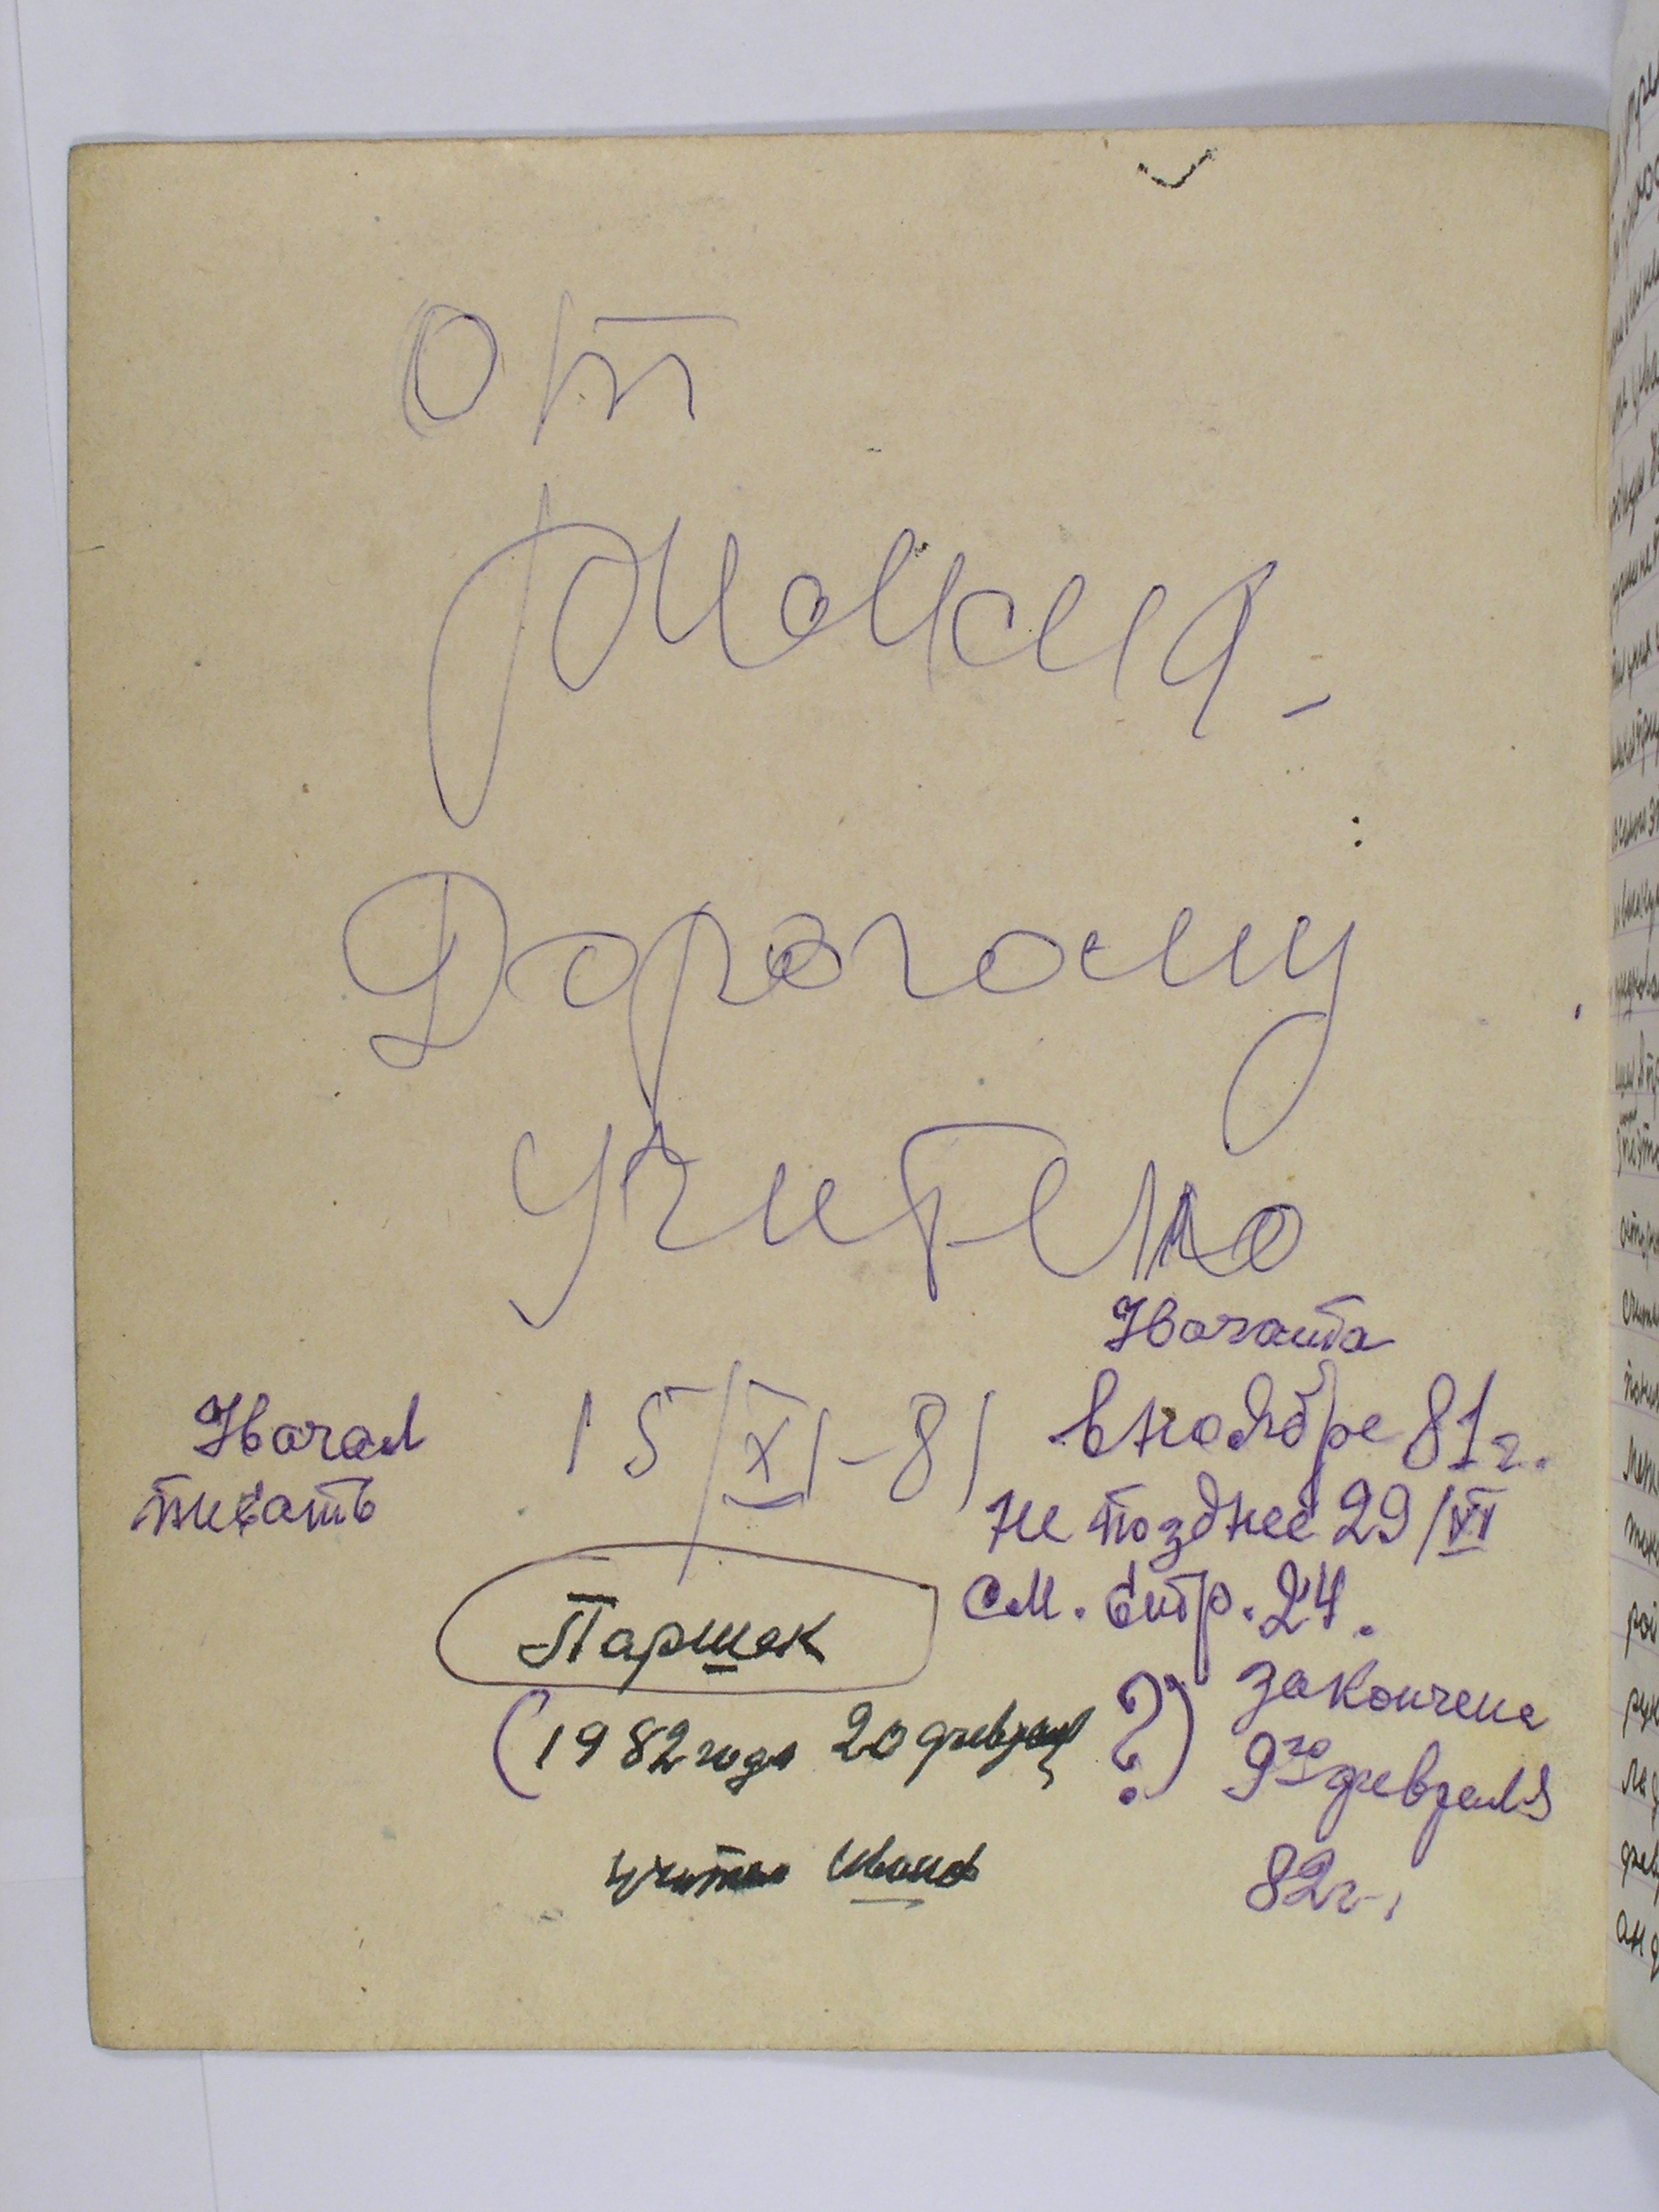 От
Дорогому
Учителю
Начата
Начал
писать
15/XI-81
в ноябре 81г.
не позднее 29/XI
см. стр. 24.
Паршек
(1982 года 20 февраля ?)
закончена
9го февраля
82г.
учитель Иванов